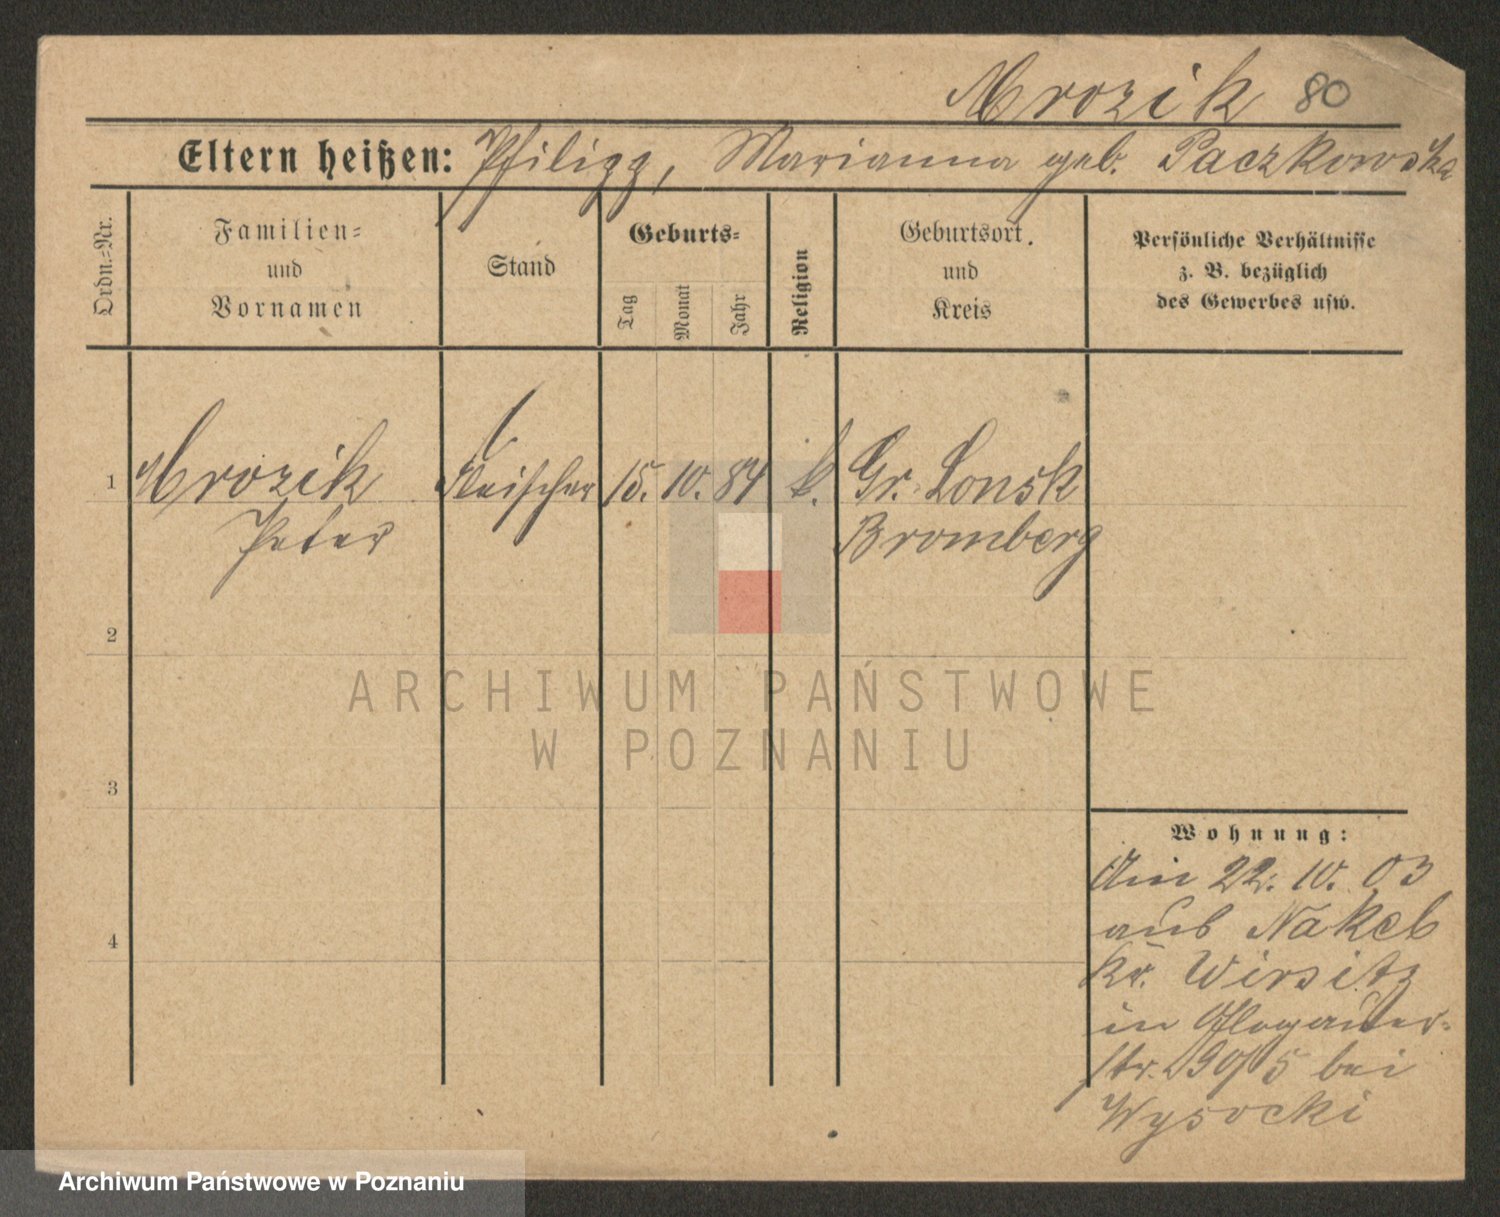 Mrozik 80
Eltern heißen: Philipp, Marianna geb. Paczkowska
Ordn.=Nr.
Familien=
und
Vornamen
Stand
Geburts=
Tag
Monat
Jahr
Religion
Geburtsort.
und
Kreis
Persönliche Verhältnisse
z. B. bezüglich
des Gewerbes usw.
1 Mrozik Fleischer 15. 10. 84 k. Gr. Lonsk
Peter Bromberg
2
3
4
Wohnung:
Am 22. 10. 03
aus Nakel
Kr. Wirsitz
in Glogauer-
str. 90/5 bei
Wysocki
ARCHIWUM PAŃSTWOWE
W POZNANIU
Archiwum Państwowe w Poznaniu